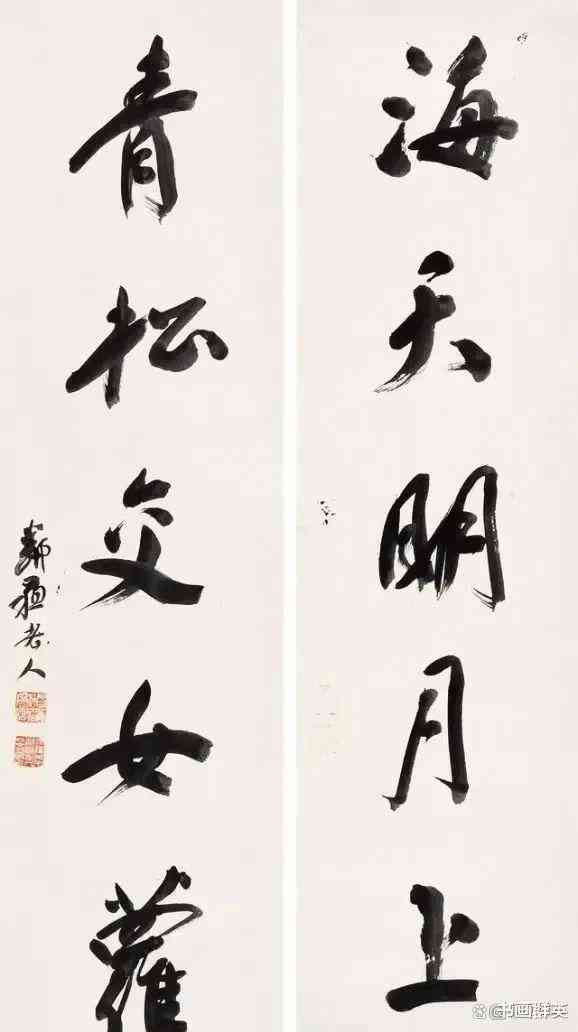 海天明月上
青松交女蘿
老人
书画群英